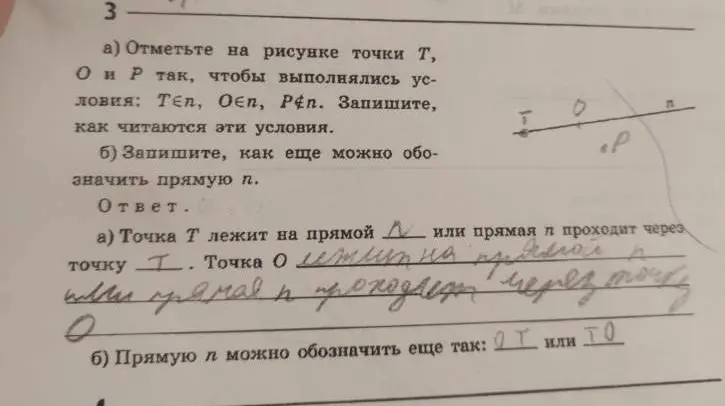 3
а) Отметьте на рисунке точки T,
O и P так, чтобы выполнялись ус-
ловия: T∈n, O∈n, P∉n. Запишите,
как читаются эти условия.
T O n
P
б) Запишите, как еще можно обо-
значить прямую n.
Ответ.
а) Точка T лежит на прямой n или прямая n проходит через
точку T. Точка O лежит на прямой n
или прямая n проходит через точку
O
б) Прямую n можно обозначить еще так: OT или TO